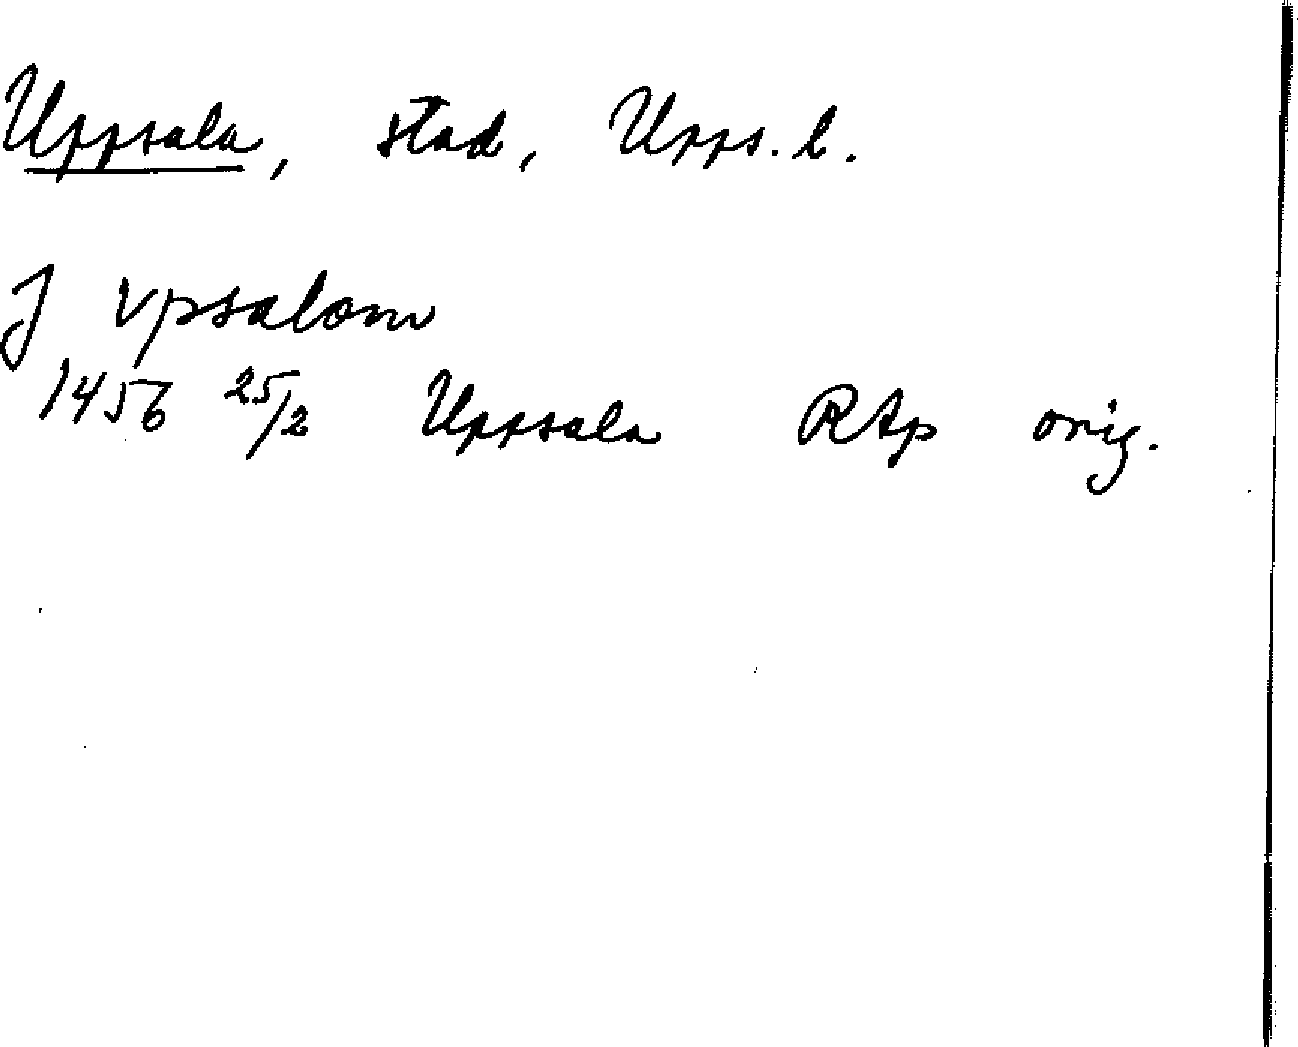 Uppsala, stad, Upps. l.
J vpsalom
1456 25/2 Uppsala RAp orig.